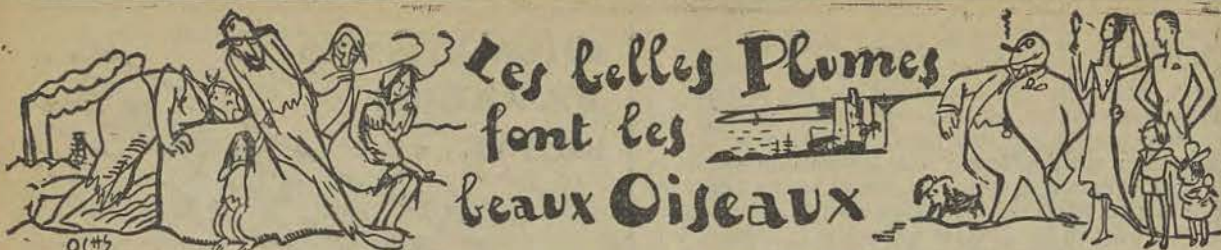 Les belles Plumes
font les
beaux Oiseaux
OCHS